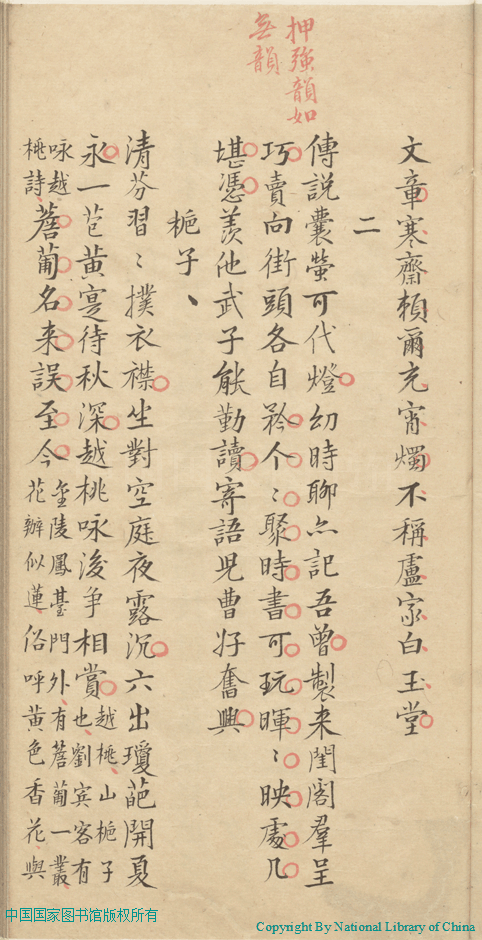 押強韻如
無韻
文章寒齋賴爾充宵燭不稱盧家白玉堂
二
傳說囊螢可代燈幼時聊亦記吾曾製来閨閣羣呈
巧賣向街頭各自矜个〻聚時書可玩暉〻映處几
堪憑羨他武子能勤讀寄語兒曹好奮興
梔子、
清芬習〻撲衣襟坐對空庭夜露沉六出瓊葩開夏
永一苞黄寔待秋深越桃咏後争相賞
越桃、山梔子
也、劉賓客有
咏越
桃詩、
薝蔔名来誤至今
金陵鳳臺門外、有薝蔔一叢、
花辦似蓮、俗呼黄色香花、與
中国国家图书馆版权所有
Copyright By National Library of China